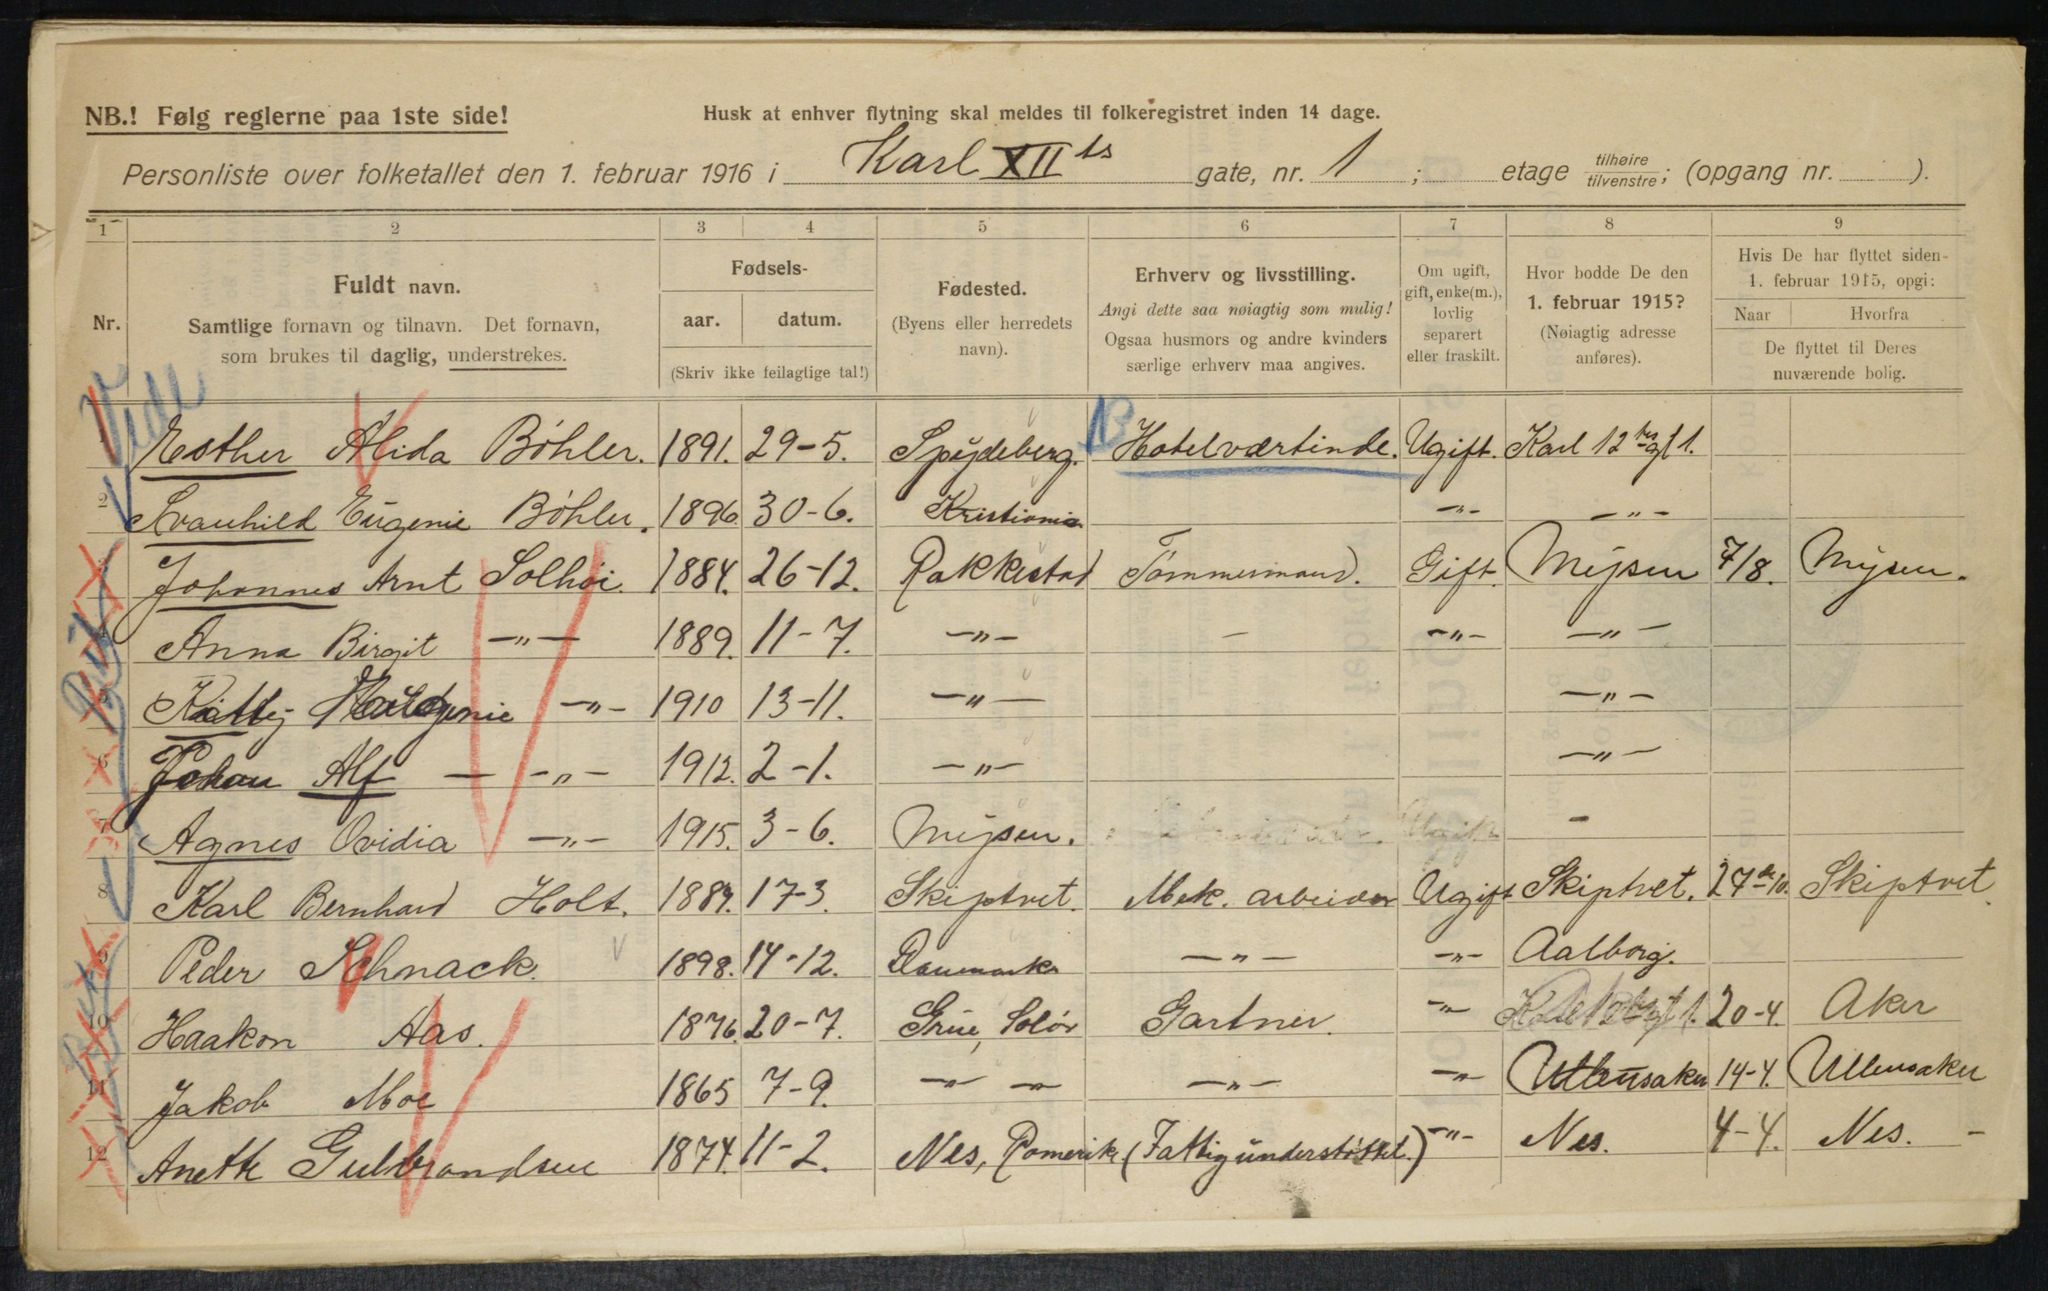 NB.! Følg reglerne paa 1ste side!
Husk at enhver flytning skal meldes til folkeregistret inden 14 dage.
Personliste over folketallet den 1. februar 1916 i Karl XII ts gate, nr. 1; etage tilhøire/tilvenstre; (opgang nr. ).
1 2 3 4 5 6 7 8 9
Nr.
Fuldt navn.
Samtlige fornavn og tilnavn. Det fornavn,
som brukes til daglig, understrekes.
Fødsels-
aar. datum.
(Skriv ikke feilagtige tal!)
Fødested.
(Byens eller herredets
navn).
Erhverv og livsstilling.
Angi dette saa nøiagtig som mulig!
Ogsaa husmors og andre kvinders
særlige erhverv maa angives.
Om ugift,
gift, enke(m.),
lovlig
separert
eller fraskilt.
Hvor bodde De den
1. februar 1915?
(Nøiagtig adresse
anføres).
Hvis De har flyttet siden
1. februar 1915, opgi:
Naar Hvorfra
De flyttet til Deres
nuværende bolig.
1 Esther Alida Bøhler. 1891. 29-5. Spydeberg. Hotelværtinde. Ugift. Karl 12 tes gt 1.
2 Svanhild Eugenie Bøhler. 1896. 30-6. Kristiania -"- -"-
3 Johannes Arnt Solhøi. 1884. 26-12. Rakkestad Tømmermand. Gift. Mysen 7/8. Mysen.
4 Anna Birgit -"- 1889. 11-7. -"- - -"- -"-
5 Kitty -"- 1910 13-11. -"- -"-
6 Johan Alf -"- 1912. 2-1. -"- -"-
7 Agnes Ovidia -"- 1915. 3-6. Mysen. Ugift -
8 Karl Bernhard Holt. 1889. 17-3. Skiptvet. Mek. arbeider Ugift Skiptvet. 27de 10. Skiptvet.
9 Peder Schnack. 1898. 14-12. Danmark -"- -"- Aalborg.
10 Haakon Aas. 1876. 20-7. Grue, Solør Gartner. -"- 20-4. Aker
11 Jakob Moe 1865 7-9. -"- -"- -"- Ullensaker 14-4. Ullensaker
12 Anette Gulbrandsen 1874. 11-2. Nes, Romerike (Fattigunderstøttet.) -"- Nes. 4-4. Nes. -